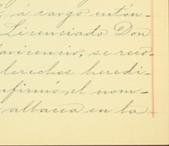 , á cargo entón-
Licenciado Don
avicencio; se reco-
derechos heredi-
nfirmo, el nom-
albacea en la